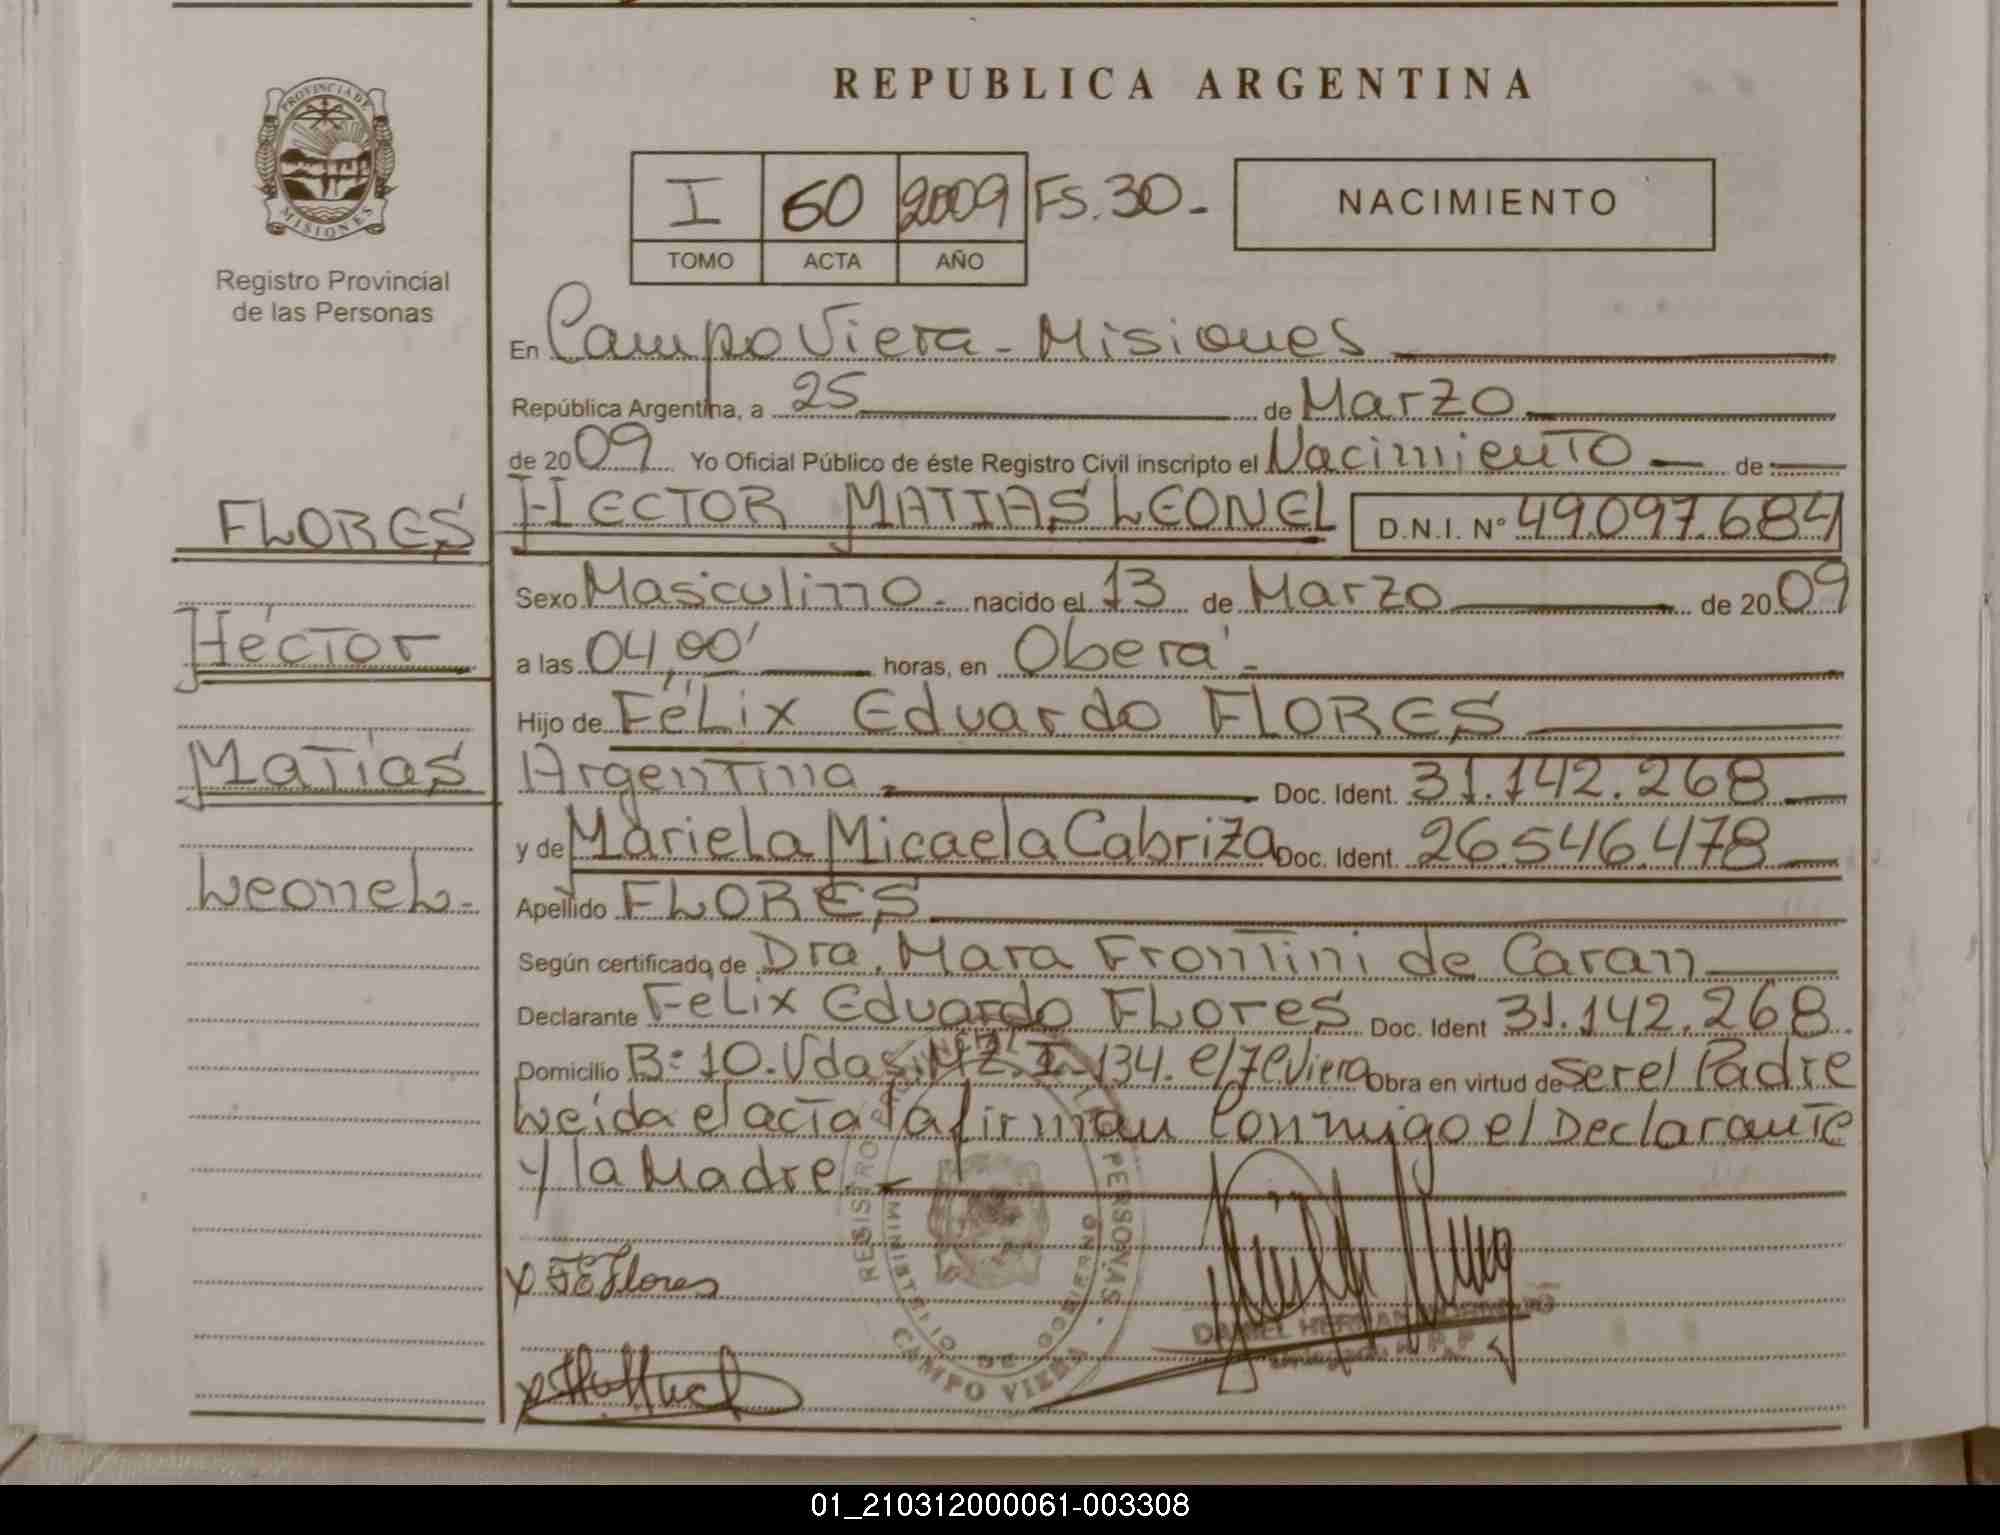 REPUBLICA ARGENTINA
PROVINCIA DE
MISIONES
Registro Provincial
de las Personas
I 60 2009 FS. 30-
TOMO ACTA AÑO
NACIMIENTO
En Campo Viera - Misiones
República Argentina, a 25 de Marzo
de 2009 Yo Oficial Público de éste Registro Civil inscripto el Nacimiento de
FLORES HECTOR MATIAS LEONEL D.N.I. N° 49.097.684
Sexo Masculino. nacido el 13 de Marzo de 2009
Héctor a las 04,00' horas, en Oberá
Hijo de Félix Eduardo FLORES
Matías Argentina Doc. Ident. 31.142.268
y de Mariela Micaela Cabriza Doc. Ident. 26.546.478
Leonel. Apellido FLORES
Según certificado de Dra. Mara Frontini de Caran
Declarante Félix Eduardo Flores Doc. Ident 31.142.268.
Domicilio B: 10. Vdas. MZ. I. 134. e/7 C Viera Obra en virtud de ser el Padre
Leida el acta la firman Conmigo el Declarante
y la Madre.
x FE Flores
REGISTRO PERSONAS
MINISTERIO DE GOBIERNO
CAMPO VIERA
DANIEL HERNAN
01_210312000061-003308